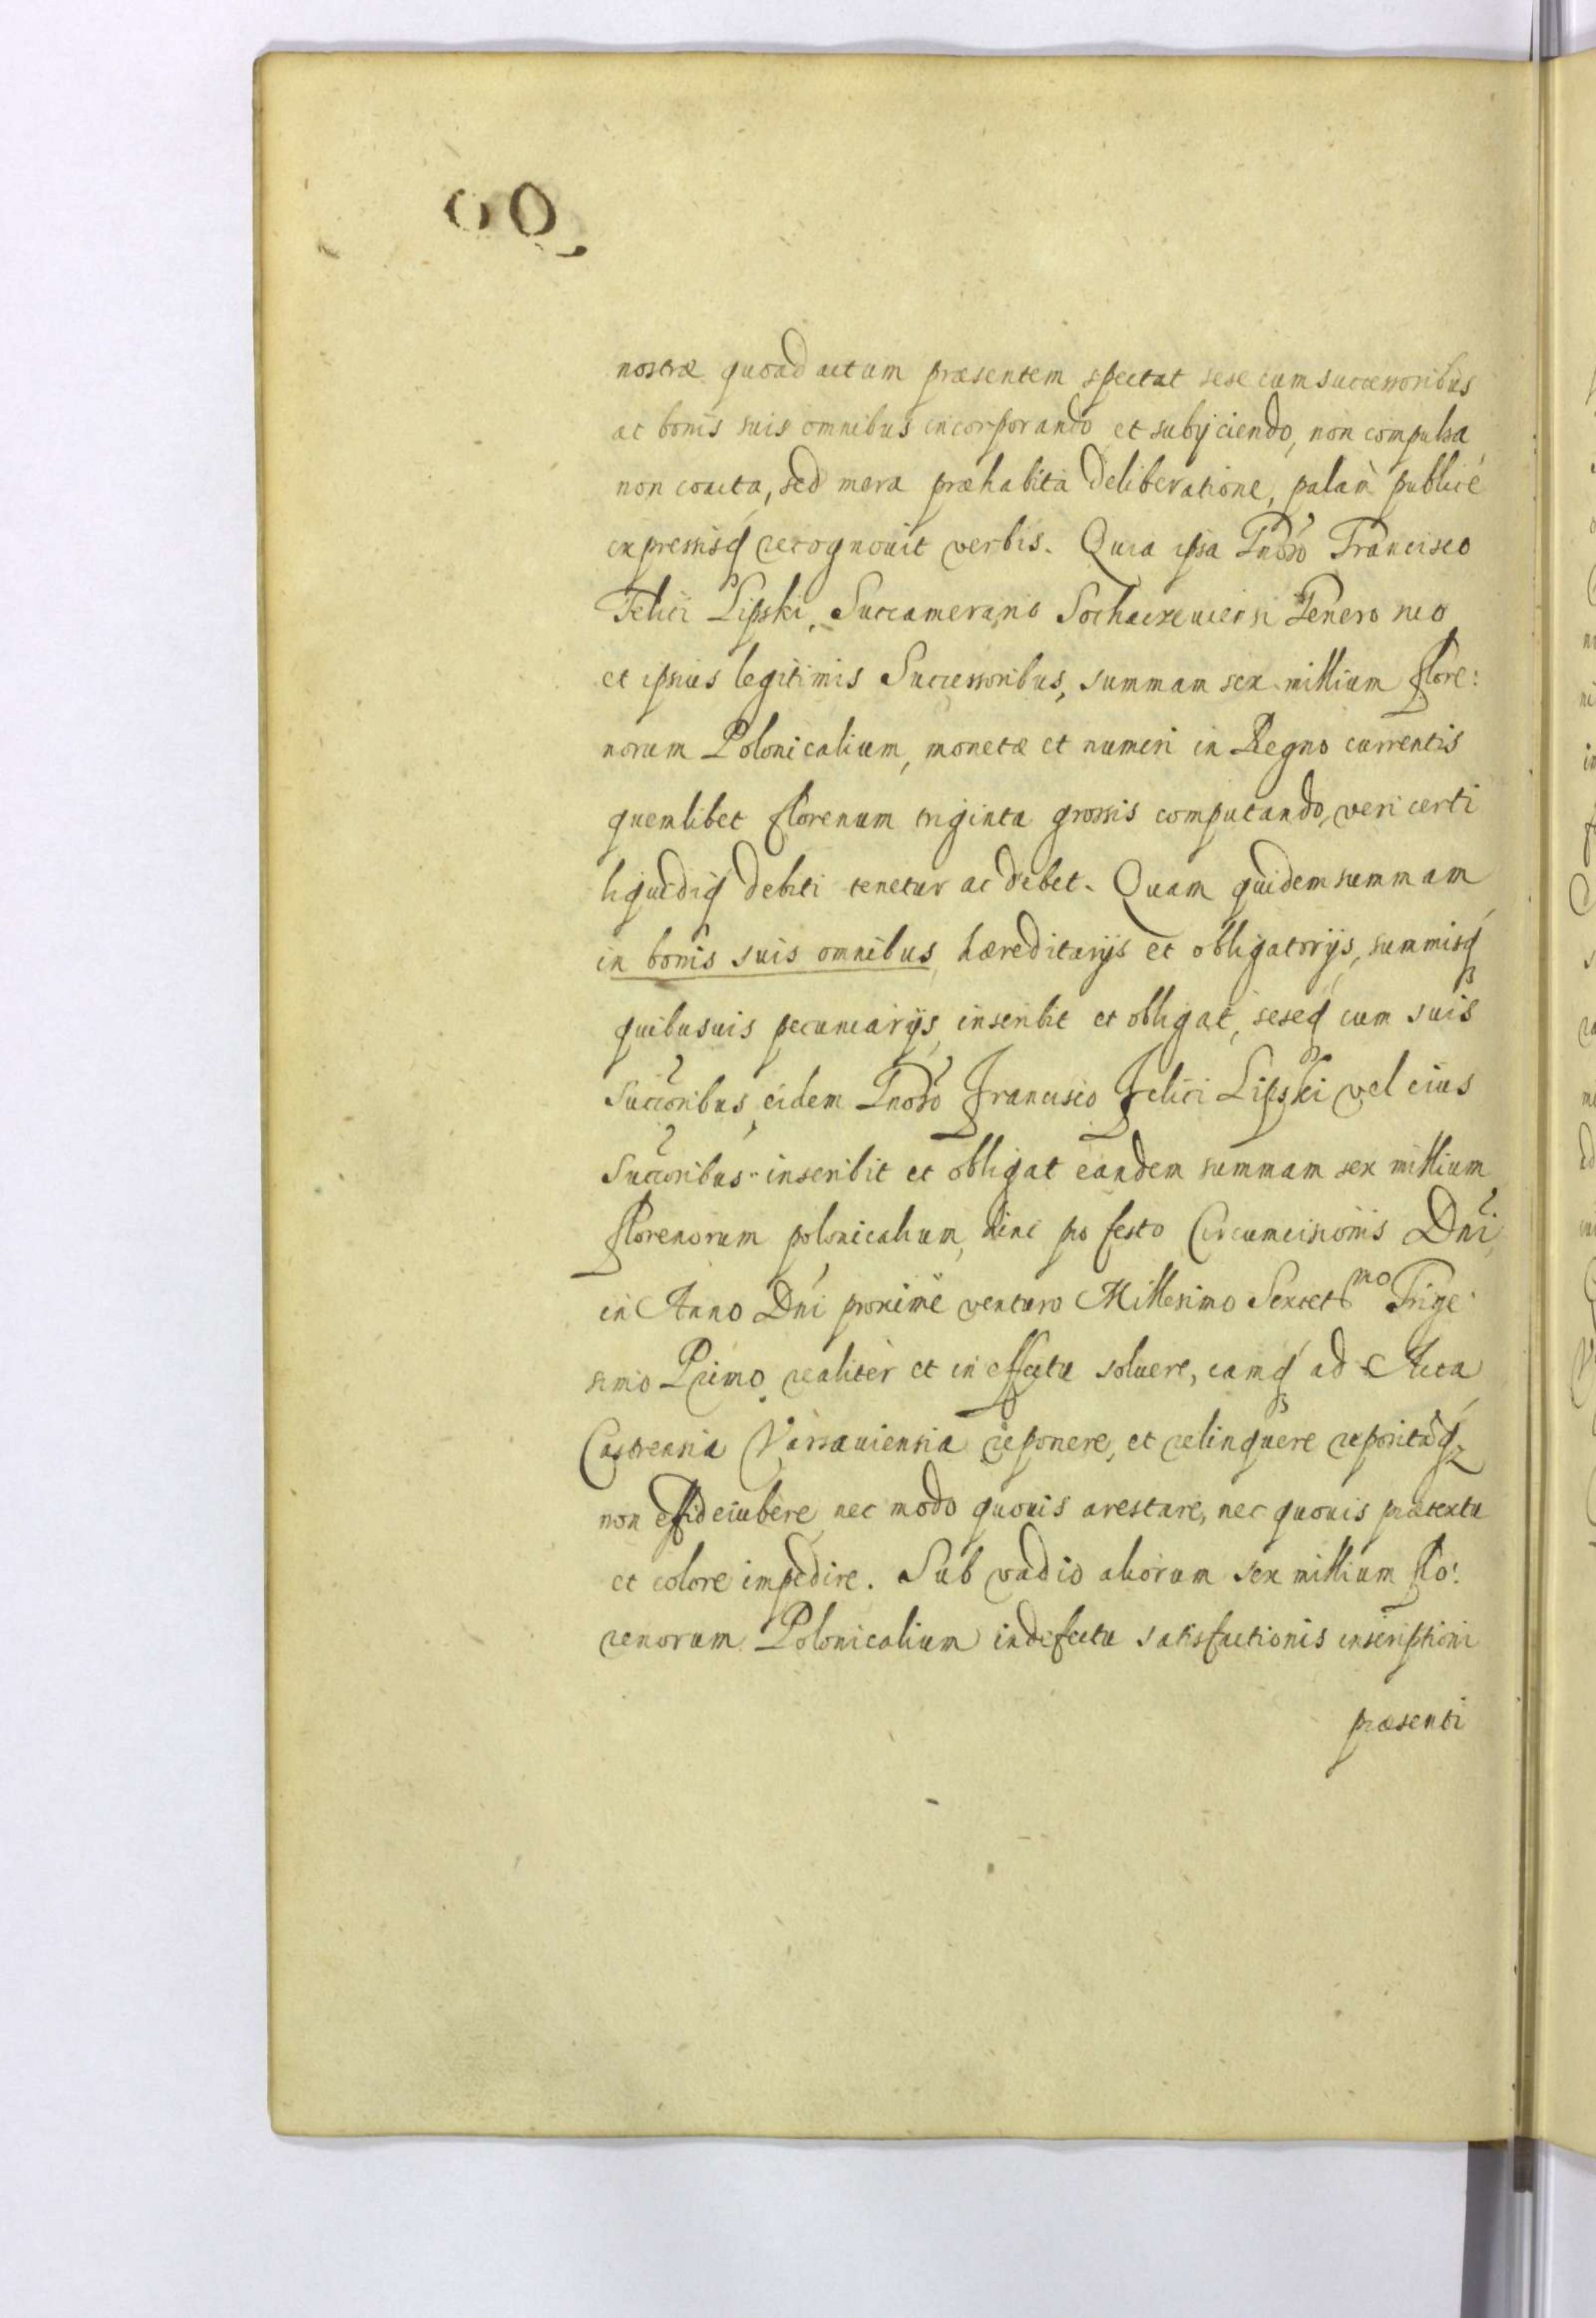 nostræ quoad actum præsentem spectat sese cum successoribus
ac bonis suis omnibus incorporando et subijciendo, non compulsa
non coacta, sed mera præhabita deliberatione, palàm publicè
expressisq́ recognouit verbis. Quia ipsa Gnoso Francisco
Felici Lipski, Succamerario Sochaczeuiensi Genero suo
et ipsius legitimis Successoribus, summam sex millium flore:
norum Polonicalium, monetæ et numeri in Regno currentis
quemlibet florenum triginta grossis computando, veri certi
liquidiq́ debiti tenetur ac debet. Quam quidem summam
in bonis suis omnibus hæreditarijs et obligatorijs, summisq́
quibusuis pecuniarijs, inscribit et obligat, seseq́ cum suis
Succoribus, eidem Gnoso Francisco Felici Lipski vel eius
Succoribus inscribit et obligat eandem summam sex millium
florenorum polonicalium, hinc pro festo Circumcisionis Dni
in Anno Dni proximè venturo Millesimo Sexcetmo Trige
simo Primo realitèr et in effectu soluere, eamq́ ad Acta
Castrensia Varsauiensia reponere, et relinquere repositaq́
non effideiubere nec modo quouis arestare, nec quouis prætextu
et colore impedire. Sub vadio aliorum sex millium flo:
renorum Polonicalium in defectu satisfactionis inscriptioni
præsenti